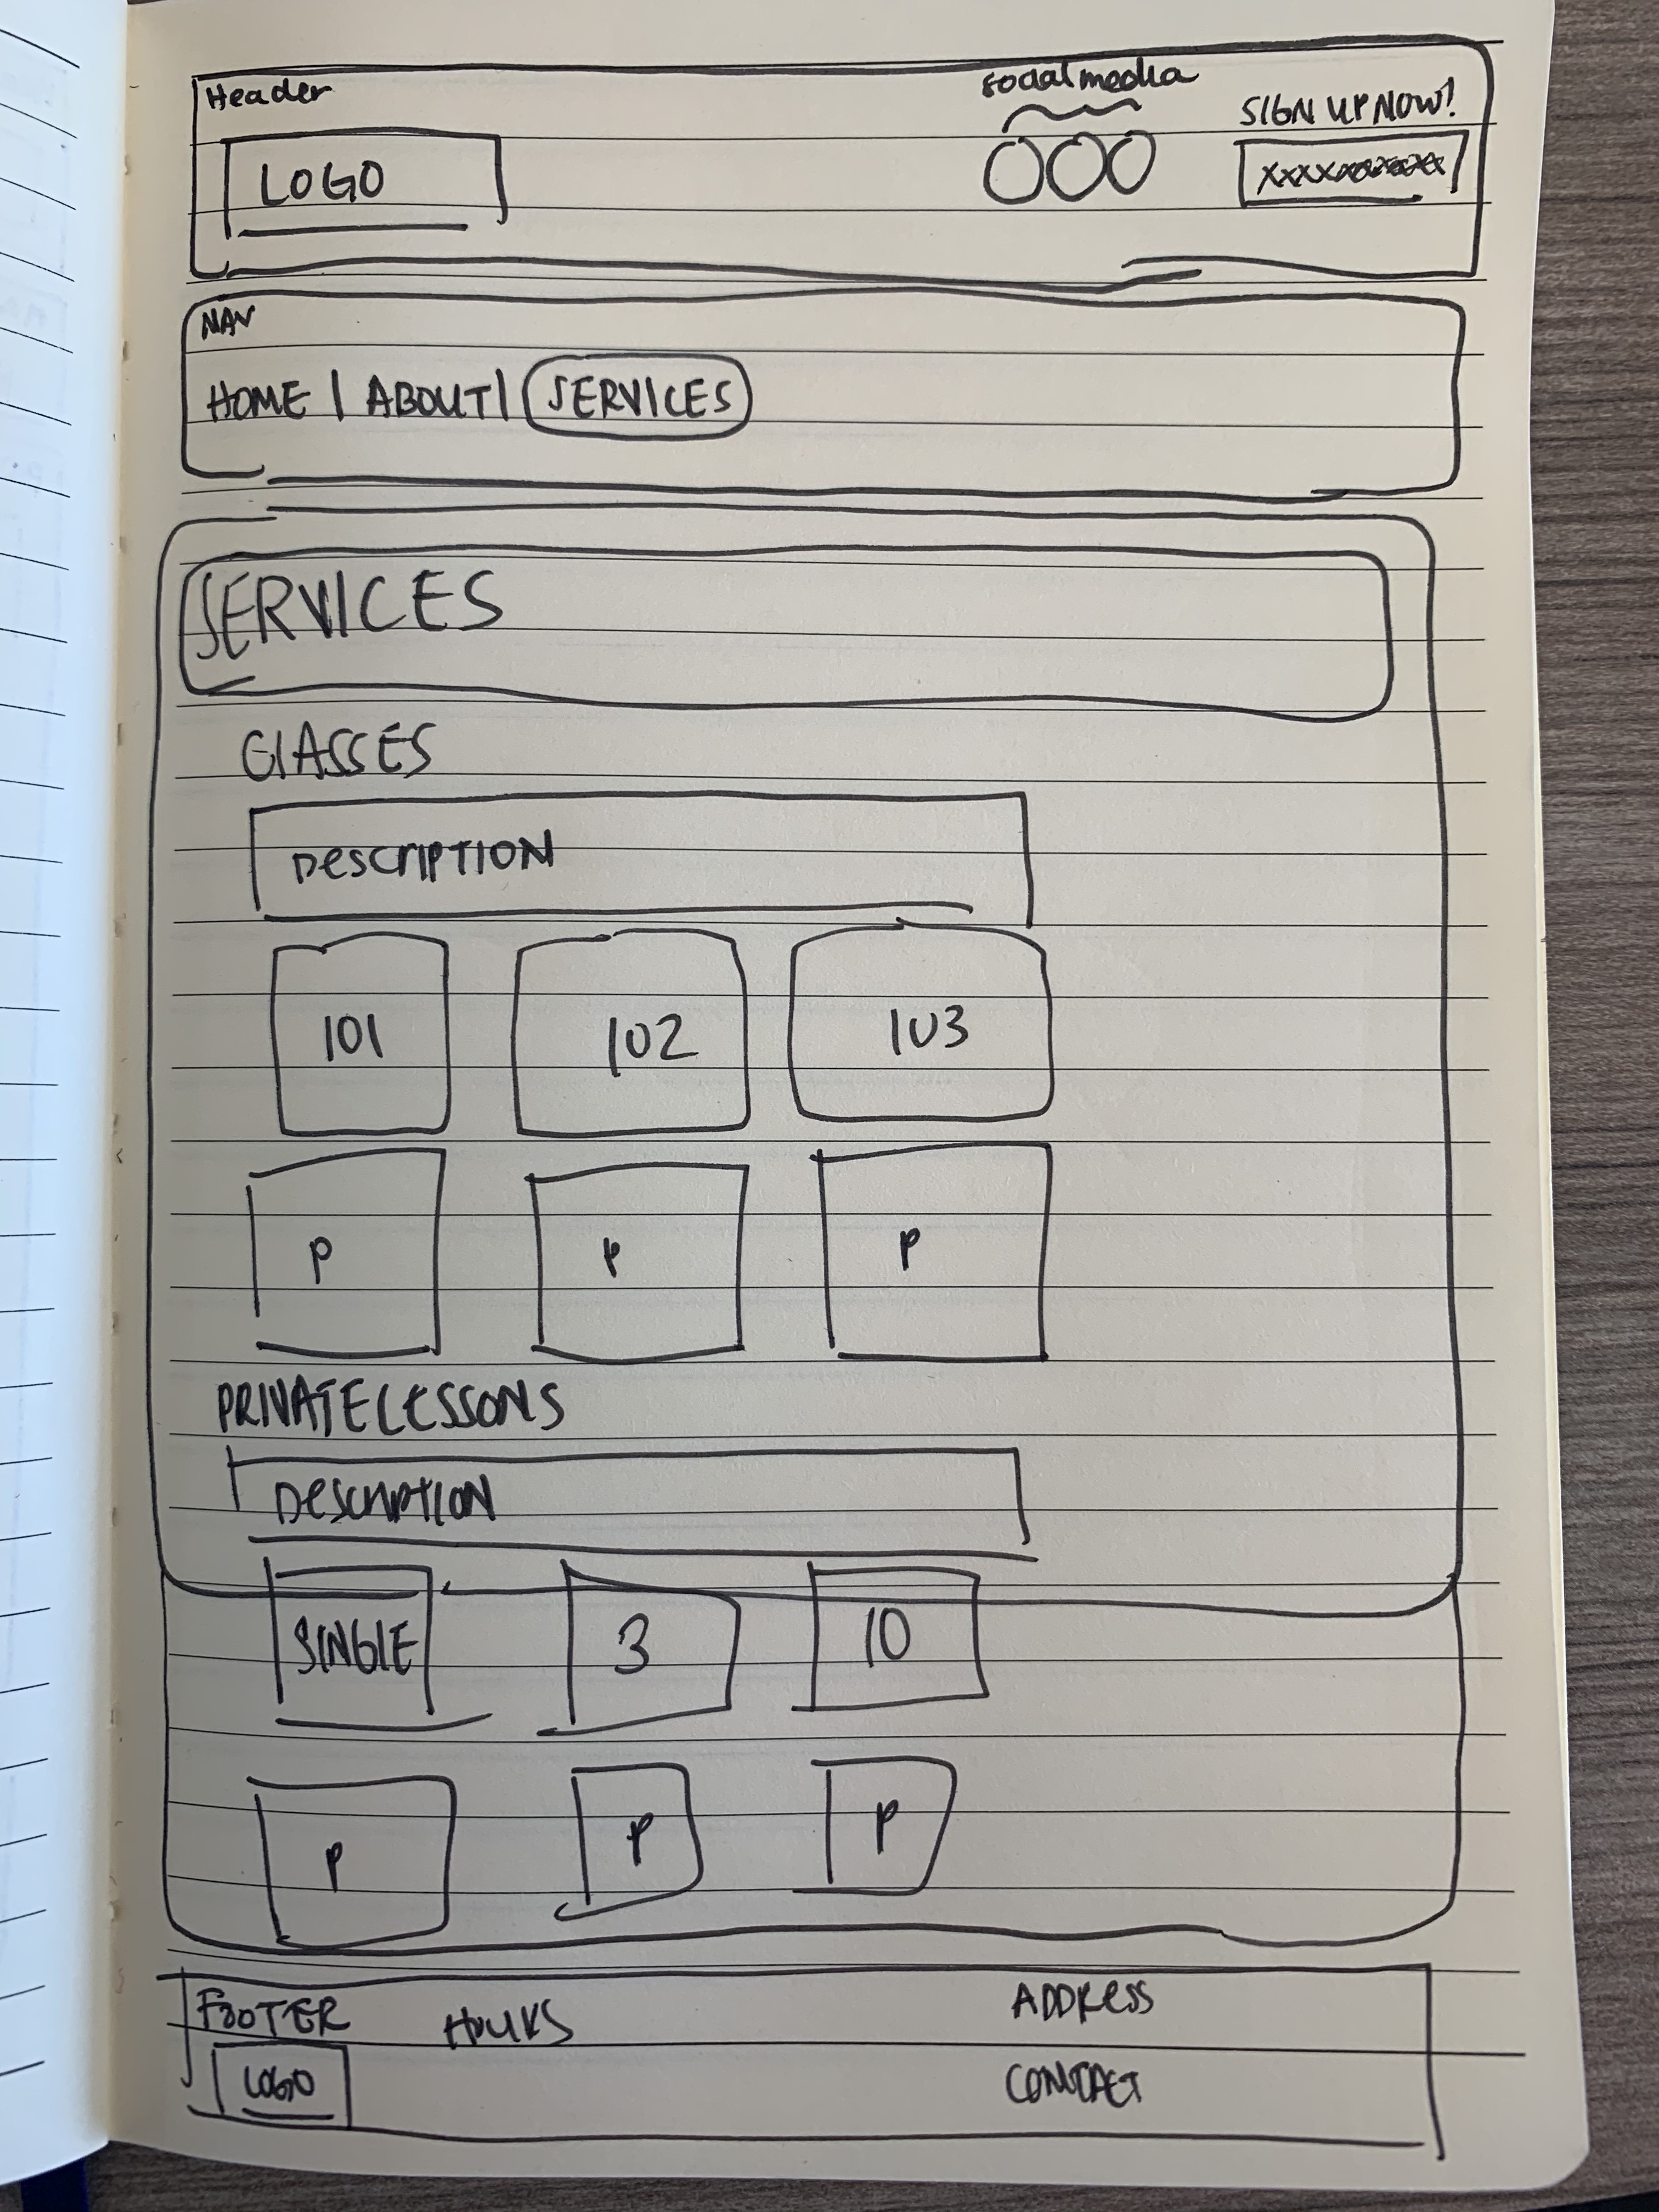 Header
social media
SIGN UP NOW!
LOGO
NAV
HOME | ABOUT | SERVICES
SERVICES
ClASSES
DESCRIPTION
101 102 103
P P P
PRIVATE LESSONS
DESCRIPTION
SINGlE 3 10
P P P
FOOTER HOURS ADDRESS
LOGO CONTACT